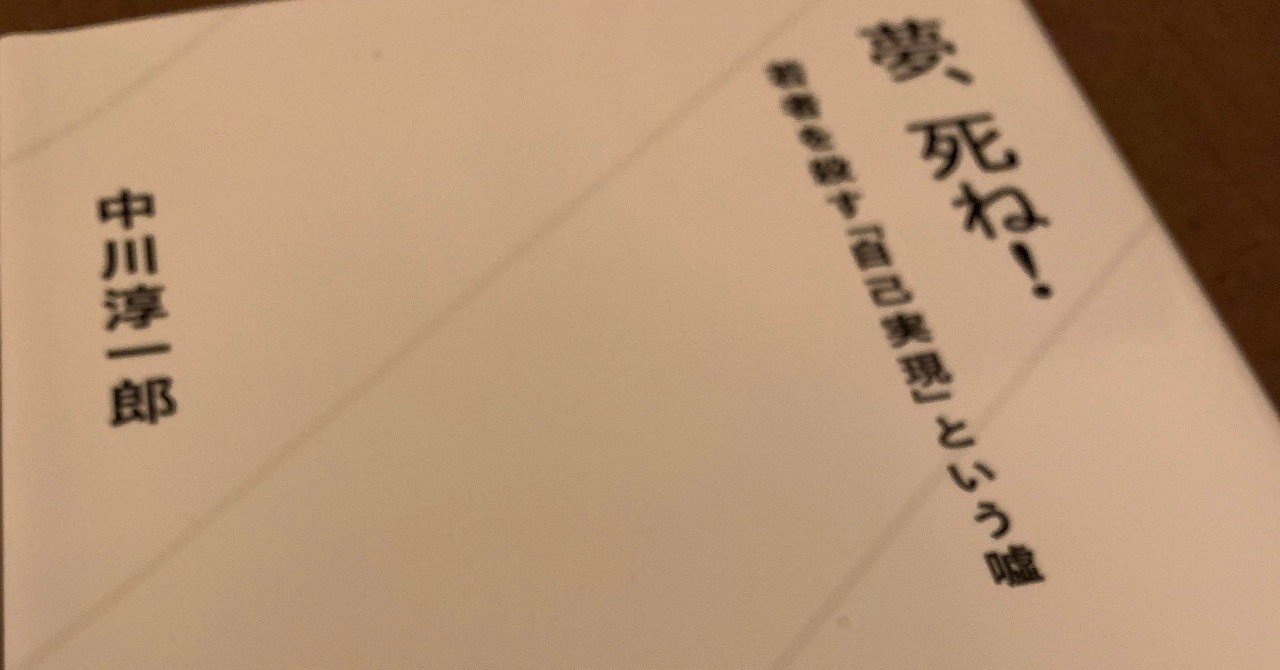 夢、死ね!
若者を殺す「自己実現」という嘘
中川淳一郎